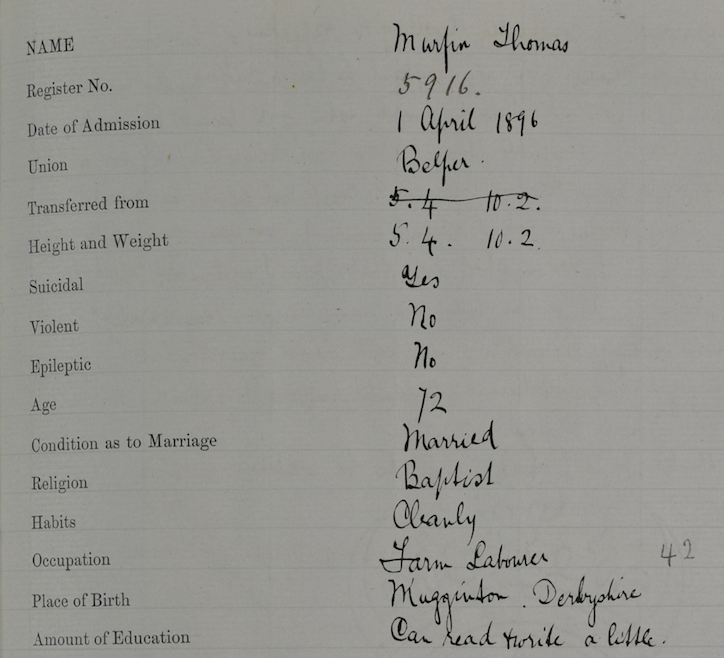 NAME Murfin Thomas
Register No. 5916.
Date of Admission 1 April 1896
Union Belper.
Transferred from 5.4 10.2.
Height and Weight 5.4. 10.2.
Suicidal Yes
Violent No
Epileptic No
Age 72
Condition as to Marriage Married
Religion Baptist
Habits Cleanly
Occupation Farm Labourer 42
Place of Birth Mugginton. Derbyshire
Amount of Education Can read & write a little.